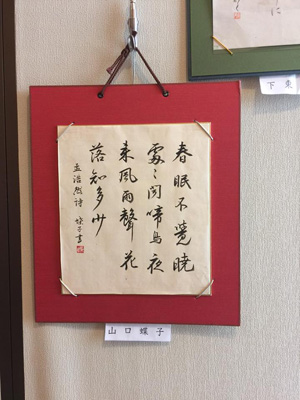 春眠不覺曉
處〻聞啼鳥夜
來風雨聲花
落知多少
孟浩然詩 蝶子書
山口蝶子
下東